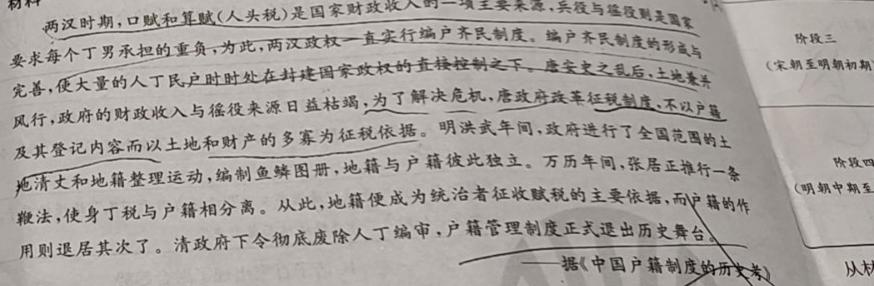 材料
两汉时期,口赋和算赋(人头税)是国家财政收入的一项主要来源,兵役与徭役则是国家
要求每个丁男承担的重负,为此,两汉政权一直实行编户齐民制度。编户齐民制度的形成与
完善,使大量的人丁民户时时处在封建国家政权的直接控制之下。唐安史之乱后,土地兼并
风行,政府的财政收入与徭役来源日益枯竭,为了解决危机,唐政府改革征税制度,不以户籍
及其登记内容而以土地和财产的多寡为征税依据。明洪武年间,政府进行了全国范围的土
地清丈和地籍整理运动,编制鱼鳞图册,地籍与户籍彼此独立。万历年间,张居正推行一条
鞭法,使身丁税与户籍相分离。从此,地籍便成为统治者征收赋税的主要依据,而户籍的作
用则退居其次了。清政府下令彻底废除人丁编审,户籍管理制度正式退出历史舞台。
——据《中国户籍制度的历史考》
阶段三
(宋朝至明朝初期
阶段四
(明朝中期至
从材